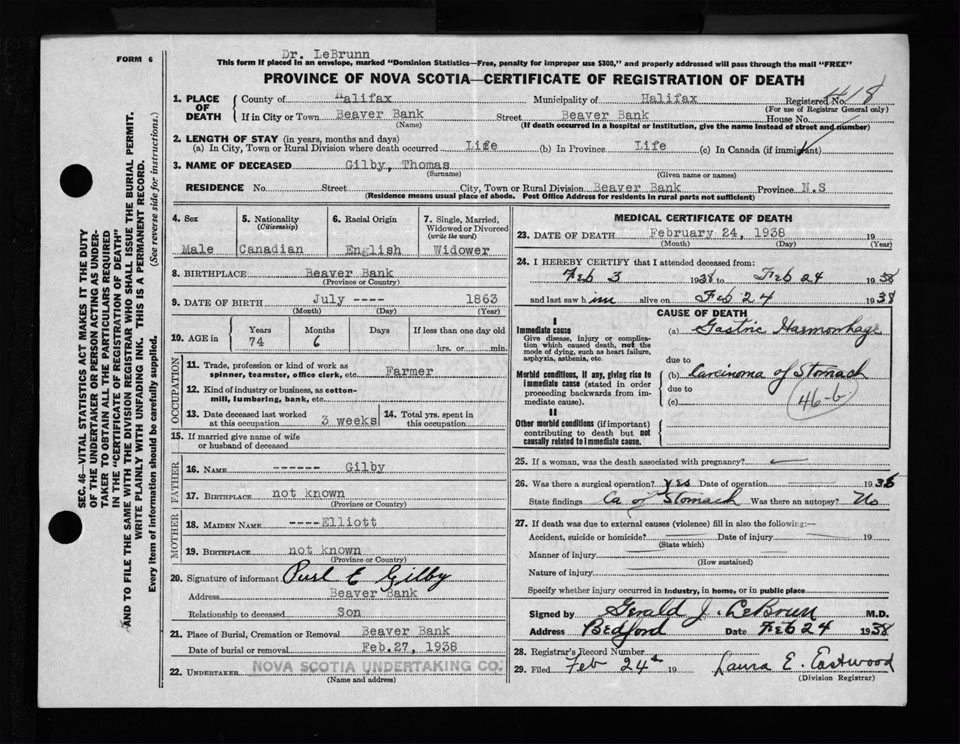 FORM 6
Dr. LeBrunn
This form if placed in an envelope, marked "Dominion Statistics—Free, penalty for improper use $300," and properly addressed will pass through the mail "FREE"
PROVINCE OF NOVA SCOTIA—CERTIFICATE OF REGISTRATION OF DEATH
1. PLACE OF DEATH County of Halifax Municipality of Halifax Registered No. 418
(For use of Registrar General only)
If in City or Town Beaver Bank Street Beaver Bank House No.
(Name) (If death occurred in a hospital or institution, give the name instead of street and number)
2. LENGTH OF STAY (in years, months and days)
(a) In City, Town or Rural Division where death occurred Life (b) In Province Life (c) In Canada (if immigrant)
3. NAME OF DECEASED Gilby, Thomas
(Surname) (Given name or names)
RESIDENCE No. Street City, Town or Rural Division Beaver Bank Province N.S
(Residence means usual place of abode. Post Office Address for residents in rural parts not sufficient)
4. Sex 5. Nationality (Citizenship) 6. Racial Origin 7. Single, Married, Widowed or Divorced (write the word)
Male Canadian English Widower
8. BIRTHPLACE Beaver Bank
(Province or Country)
9. DATE OF BIRTH July ---- 1863
(Month) (Day) (Year)
10. AGE in Years Months Days If less than one day old
74 6 hrs. or min.
OCCUPATION
11. Trade, profession or kind of work as spinner, teamster, office clerk, etc. Farmer
12. Kind of industry or business, as cotton-mill, lumbering, bank, etc.
13. Date deceased last worked at this occupation 3 weeks 14. Total yrs. spent in this occupation
15. If married give name of wife or husband of deceased
FATHER
16. NAME ------ Gilby
17. BIRTHPLACE not known
(Province or Country)
MOTHER
18. MAIDEN NAME ----Elliott
19. BIRTHPLACE not known
(Province or Country)
20. Signature of informant Purl E Gilby
Address Beaver Bank
Relationship to deceased Son
21. Place of Burial, Cremation or Removal Beaver Bank
Date of burial or removal Feb.27, 1938
22. UNDERTAKER NOVA SCOTIA UNDERTAKING CO.
(Name and address)
MEDICAL CERTIFICATE OF DEATH
23. DATE OF DEATH February 24, 1938 19
(Month) (Day) (Year)
24. I HEREBY CERTIFY that I attended deceased from:
Feb 3 1938 to Feb 24 1938
and last saw him alive on Feb 24 1938
CAUSE OF DEATH
I
Immediate cause
Give disease, injury or complication which caused death, not the mode of dying, such as heart failure, asphyxia, asthenia, etc.
(a) Gastric Haemorrhage
due to
Morbid conditions, if any, giving rise to immediate cause (stated in order proceeding backwards from immediate cause).
(b) Carcinoma of Stomach
due to
(c)
46-b
II
Other morbid conditions (if important) contributing to death but not causally related to immediate cause.
25. If a woman, was the death associated with pregnancy?
26. Was there a surgical operation? yes Date of operation 1936
State findings Ca of Stomach Was there an autopsy? No
27. If death was due to external causes (violence) fill in also the following:—
Accident, suicide or homicide? Date of injury 19
(State which)
Manner of injury
(How sustained)
Nature of injury
Specify whether injury occurred in industry, in home, or in public place
Signed by Gerald J. LeBrun M.D.
Address Bedford Date Feb 24 1938
28. Registrar's Record Number
29. Filed Feb 24th 19 Laura E. Eastwood
(Division Registrar)
SEC. 46—VITAL STATISTICS ACT MAKES IT THE DUTY
OF THE UNDERTAKER OR PERSON ACTING AS UNDER-
TAKER TO OBTAIN ALL THE PARTICULARS REQUIRED
IN THE "CERTIFICATE OF REGISTRATION OF DEATH"
AND TO FILE THE SAME WITH THE DIVISION REGISTRAR WHO SHALL ISSUE THE BURIAL PERMIT.
WRITE PLAINLY WITH UNFADING INK. THIS IS A PERMANENT RECORD.
Every item of information should be carefully supplied. (See reverse side for instructions.)